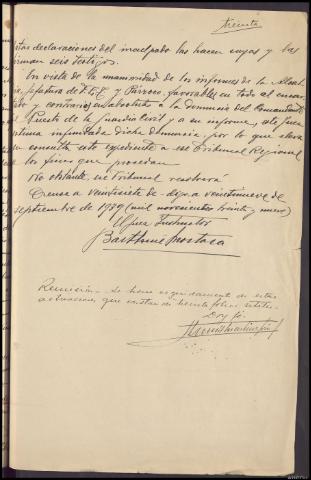 treinta
declaraciones del inculpado las hacen suyas y las
firman seis testigos.
En vista de la unanimidad de los informes de la Alcal-
Jefatura de F.E.T. y Párroco, favorables en todo al encar-
tado y contrarios en absoluto a la denuncia del Comandante
Puesto de la Guardia Civil y a su informe, este Juez
estima infundada dicha denuncia, por lo que eleva
en consulta este expediente a ese Tribunal Regional
los fines que procedan
No obstante, su Tribunal resolverá
a veintisiete de - digo a veintinueve de
septiembre de 1939 (mil novecientos treinta y nueve)
El Juez Instructor
Remisión - Se hace seguidamente de estas
actuaciones, que constan de treinta folios útiles.
Doy fe.